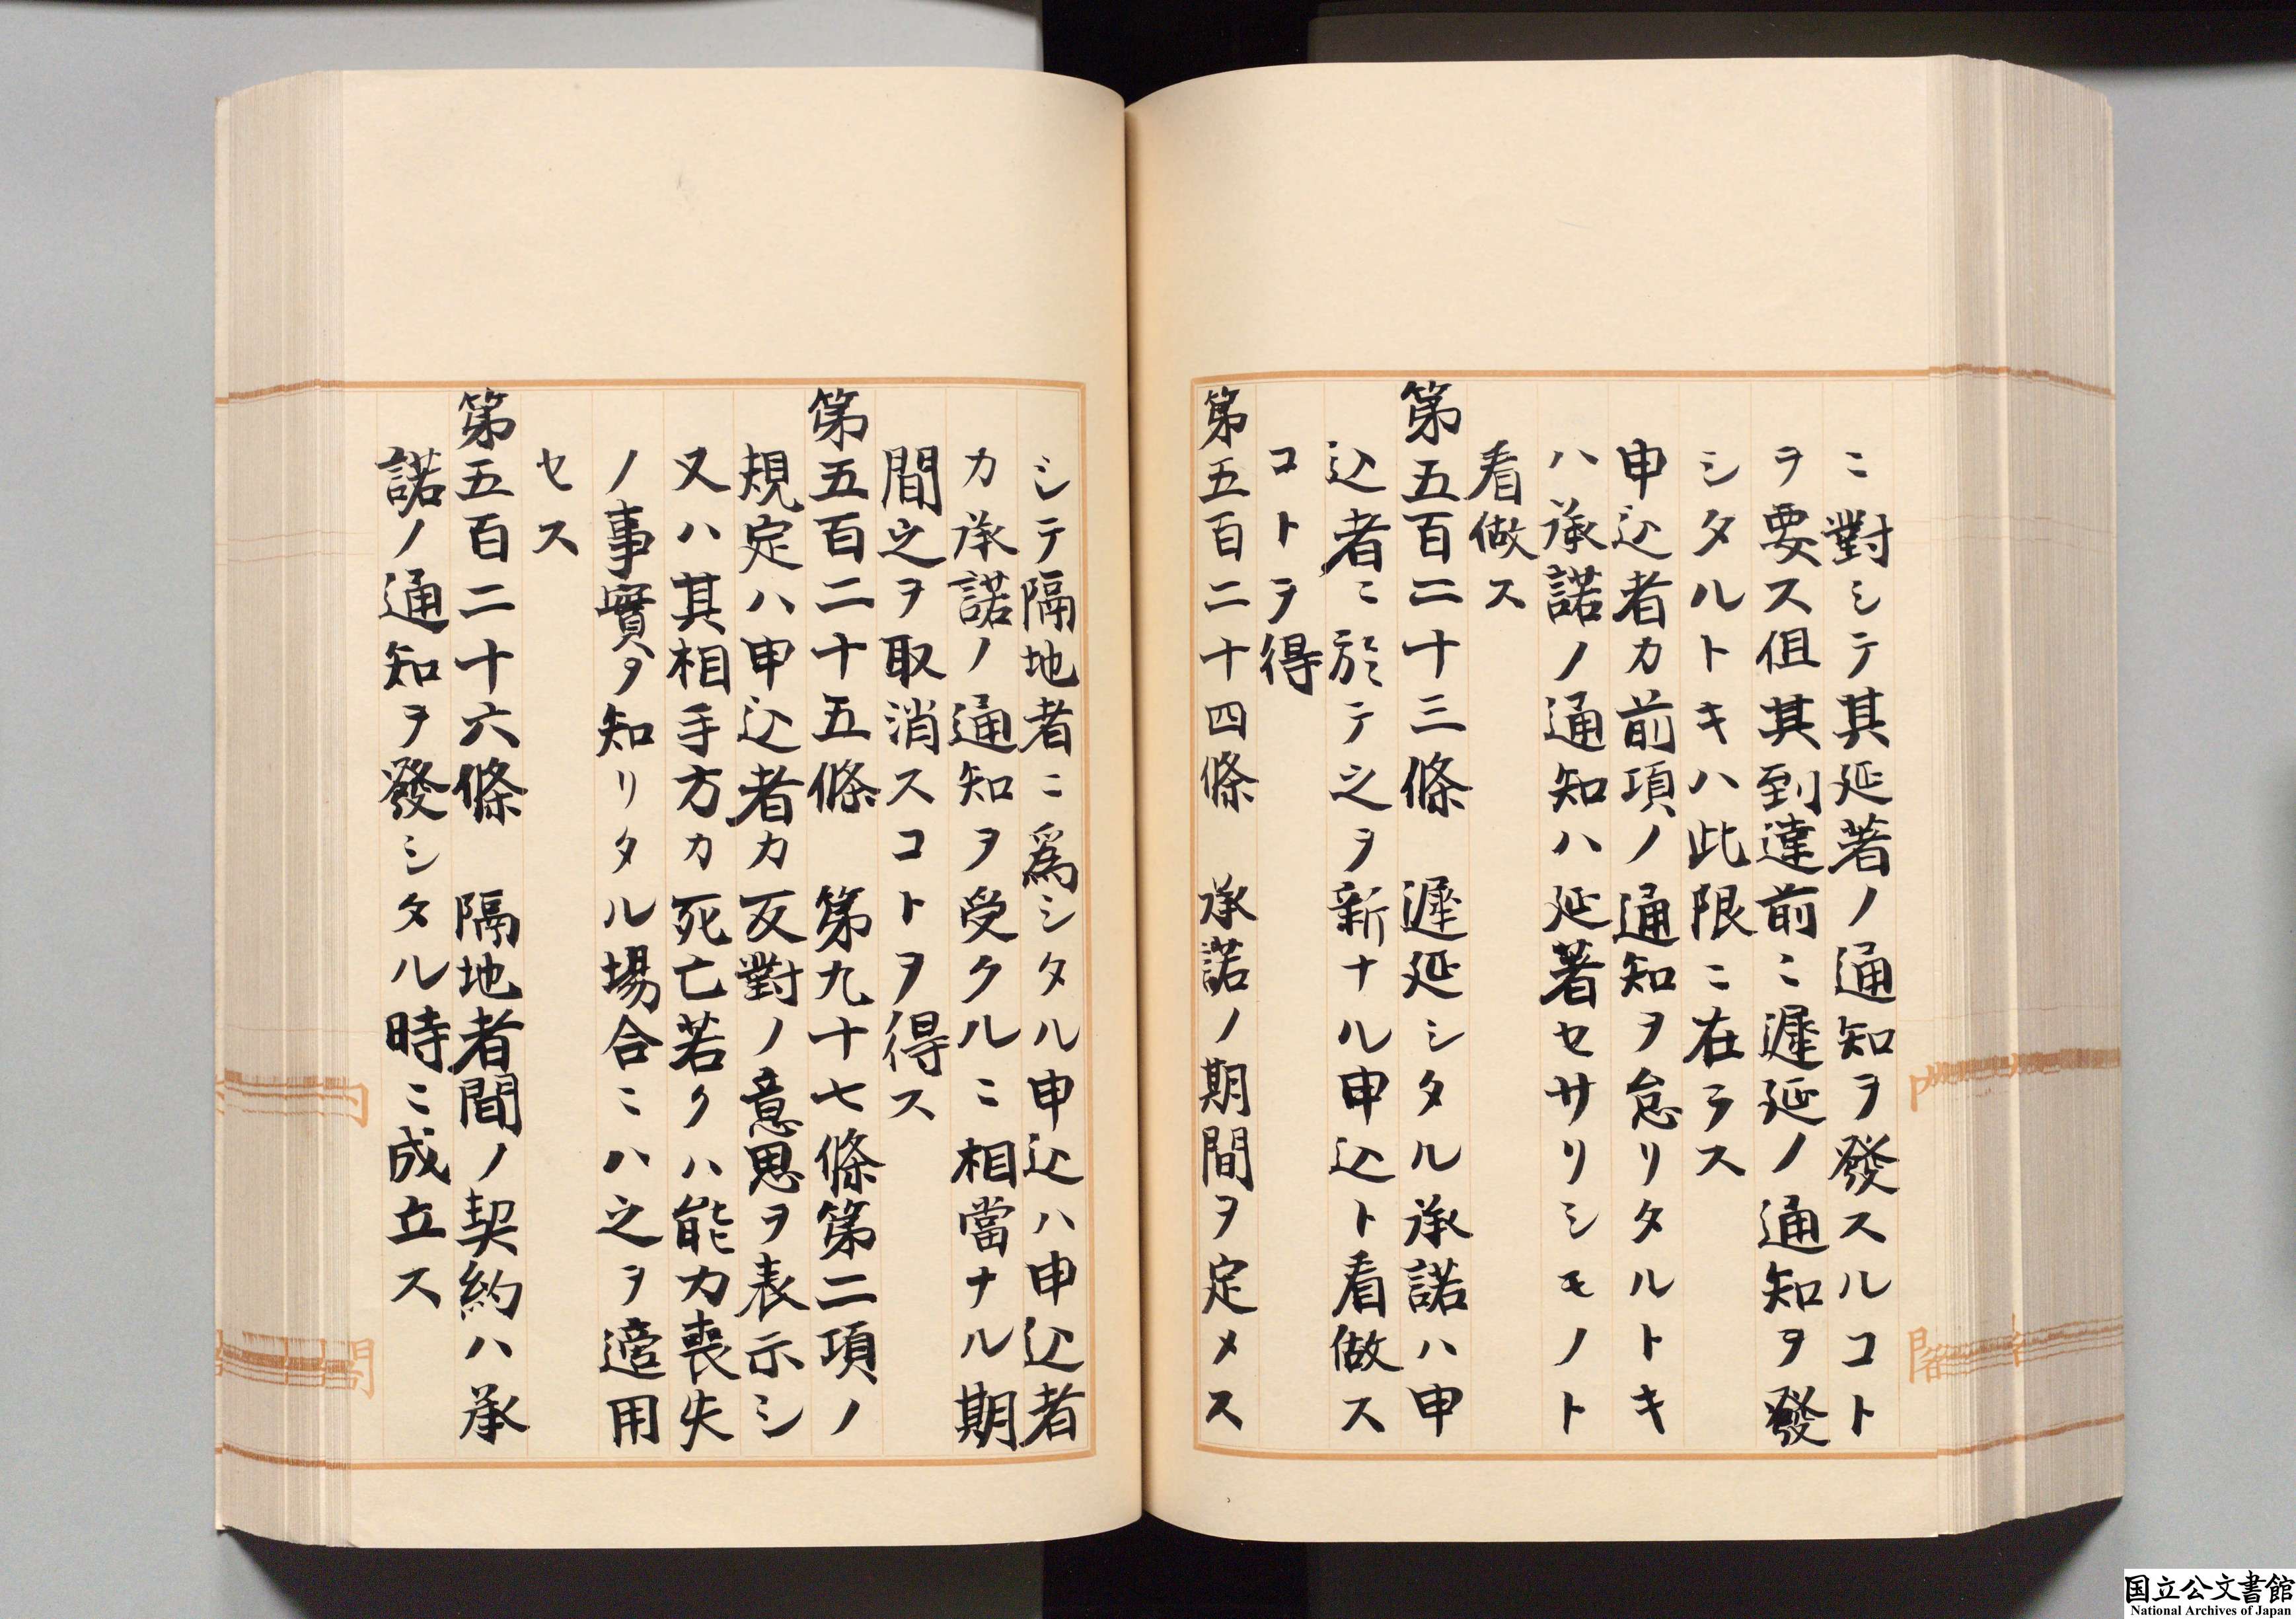 ニ對シテ其延著ノ通知ヲ發スルコト
ヲ要ス但其到達前ニ遲延ノ通知ヲ發
シタルトキハ此限ニ在ラス
申込者カ前項ノ通知ヲ怠リタルトキ
ハ承諾ノ通知ハ延著セサリシモノト
看做ス
第五百二十三條　遲延シタル承諾ハ申
込者ニ於テ之ヲ新ナル申込ト看做ス
コトヲ得
第五百二十四條　承諾ノ期間ヲ定メス
シテ隔地者ニ爲シタル申込ハ申込者
カ承諾ノ通知ヲ受クルニ相當ナル期
間之ヲ取消スコトヲ得ス
第五百二十五條　第九十七條第二項ノ
規定ハ申込者カ反對ノ意思ヲ表示シ
又ハ其相手方カ死亡若クハ能力喪失
ノ事實ヲ知リタル場合ニハ之ヲ適用
セス
第五百二十六條　隔地者間ノ契約ハ承
諾ノ通知ヲ發シタル時ニ成立ス
内
閣
国立公文書館
National Archives of Japan